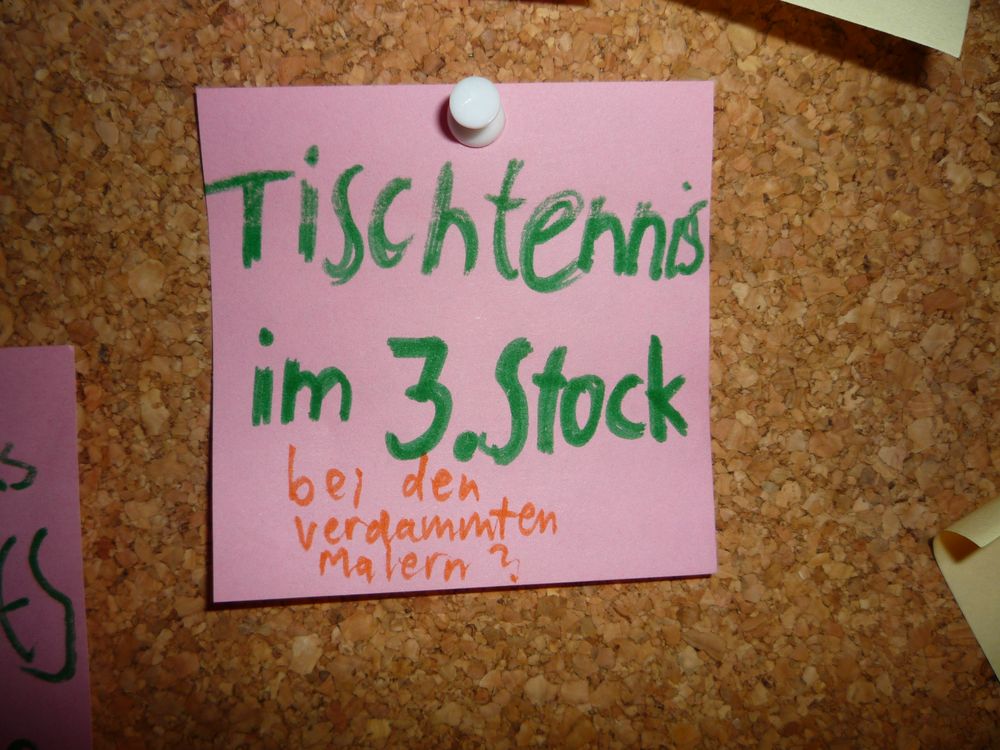 Tischtennis
im 3. Stock
bei den
verdammten
Malern?